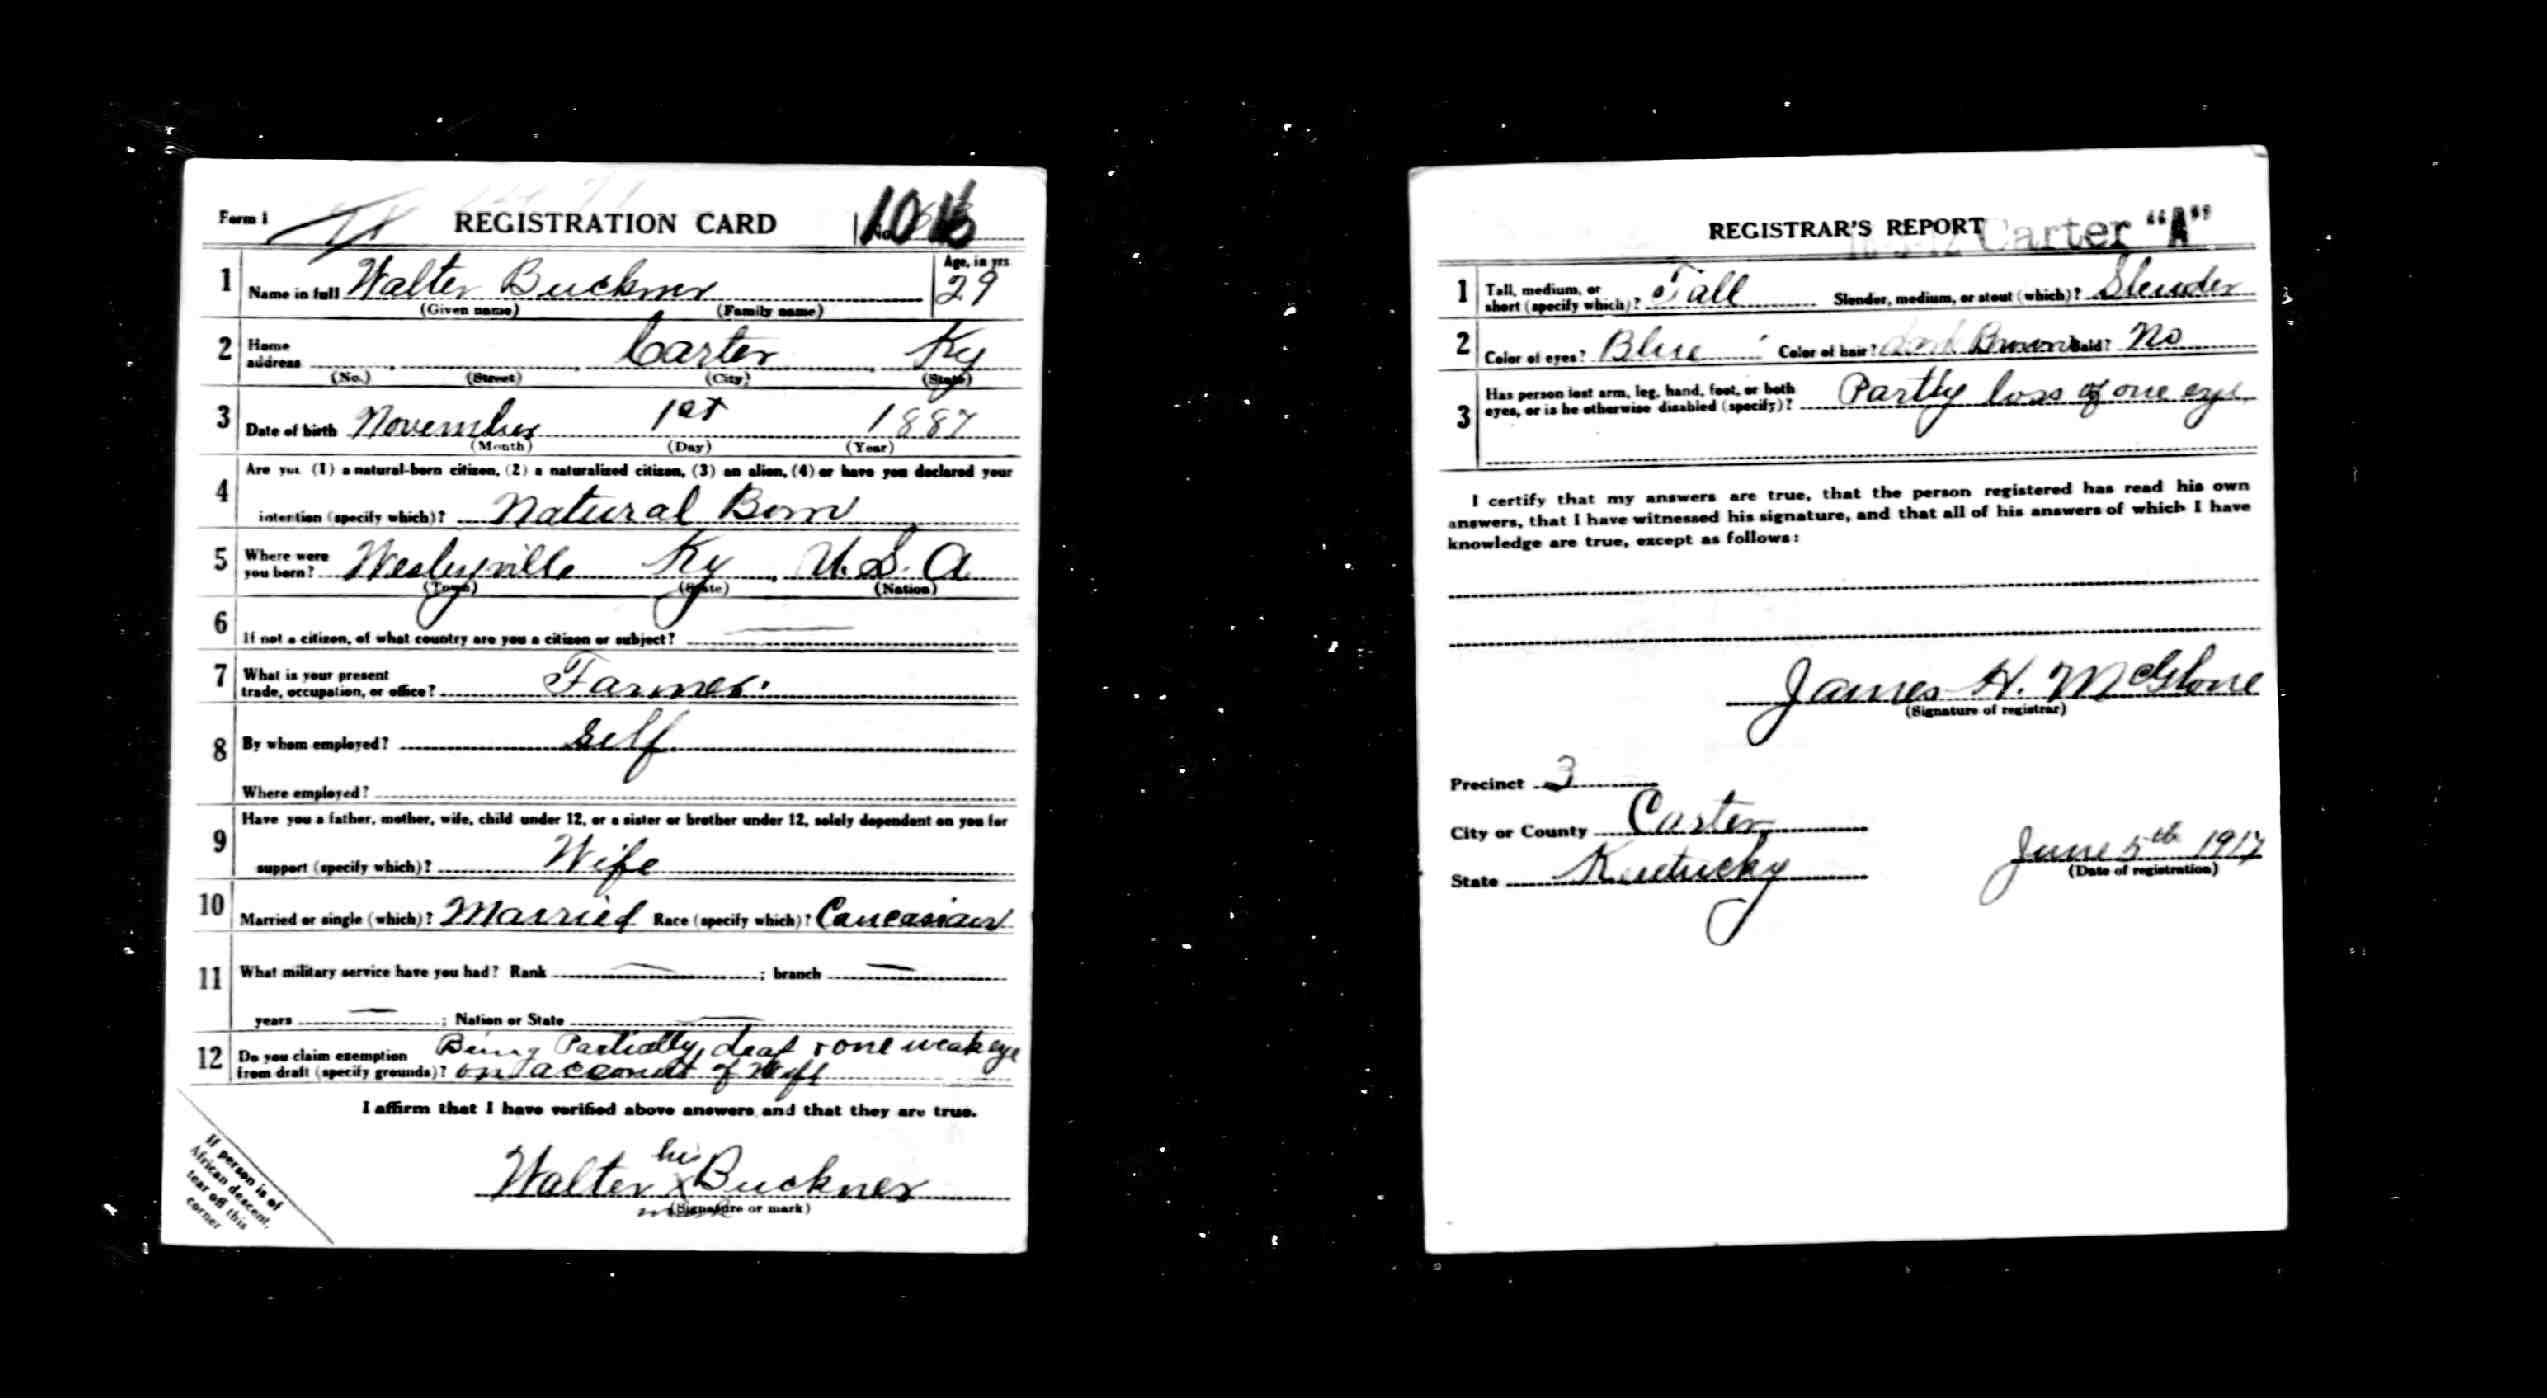 Form 1 REGISTRATION CARD No.
1 Name in full Walter Buckner Age, in yrs 29
(Given name) (Family name)
2 Home address Carter Ky
(No.) (Street) (City) (State)
3 Date of birth November 1st 1887
(Month) (Day) (Year)
4 Are you (1) a natural-born citizen, (2) a naturalized citizen, (3) an alien, (4) or have you declared your
intention (specify which)? Natural Born
5 Where were you born? Wesleyville Ky U.S.A
(Town) (State) (Nation)
6 If not a citizen, of what country are you a citizen or subject? —
7 What is your present
trade, occupation, or office? Farmer.
8 By whom employed? Self
Where employed?
9 Have you a father, mother, wife, child under 12, or a sister or brother under 12, solely dependent on you for
support (specify which)? Wife
10 Married or single (which)? Married Race (specify which)? Caucasian
11 What military service have you had? Rank — ; branch —
years — ; Nation or State —
12 Do you claim exemption Being Partially deaf & one weak eye
from draft (specify grounds)? on account of Wife
I affirm that I have verified above answers and that they are true.
his
Walter X Buckner
mark (Signature or mark)
If person is of
African descent,
tear off this
corner
REGISTRAR'S REPORT Carter "A"
1 Tall, medium, or
short (specify which)? Tall Slender, medium, or stout (which)? Slender
2 Color of eyes? Blue Color of hair? dark Brown Bald? No
3 Has person lost arm, leg, hand, foot, or both
eyes, or is he otherwise disabled (specify)? Partly loss of one eye
I certify that my answers are true, that the person registered has read his own
answers, that I have witnessed his signature, and that all of his answers of which I have
knowledge are true, except as follows:
James H. McGlone
(Signature of registrar)
Precinct 3
City or County Carter
State Kentucky June 5th 1917
(Date of registration)